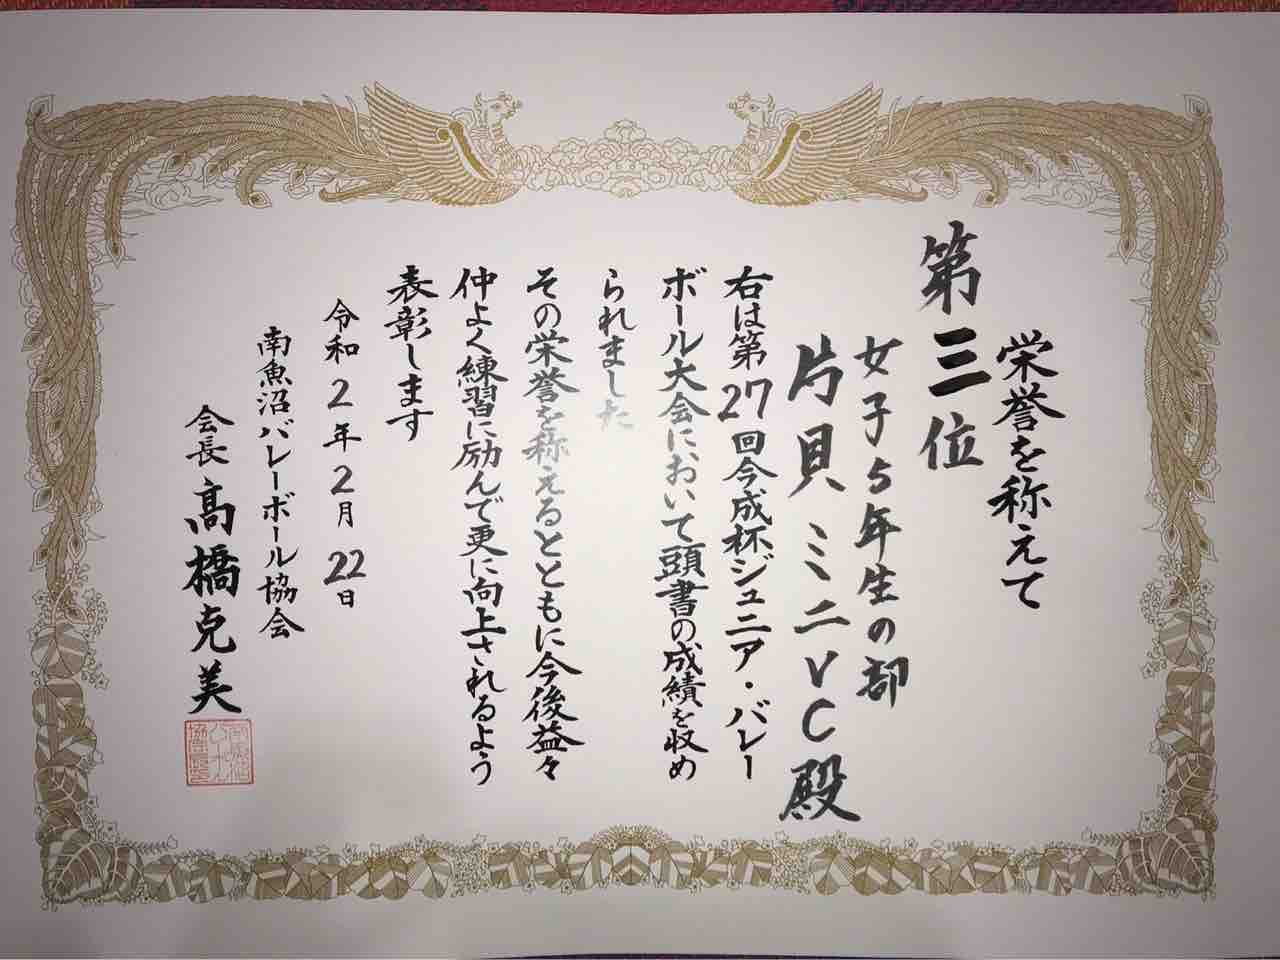 栄誉を称えて
第三位
女子5年生の部
片貝ミニVC殿
右は第27回今成杯ジュニア・バレー
ボール大会において頭書の成績を収め
られました
その栄誉を称えるとともに今後益々
仲よく練習に励んで更に向上されるよう
表彰します
令和2年2月22日
南魚沼バレーボール協会
会長 髙橋克美